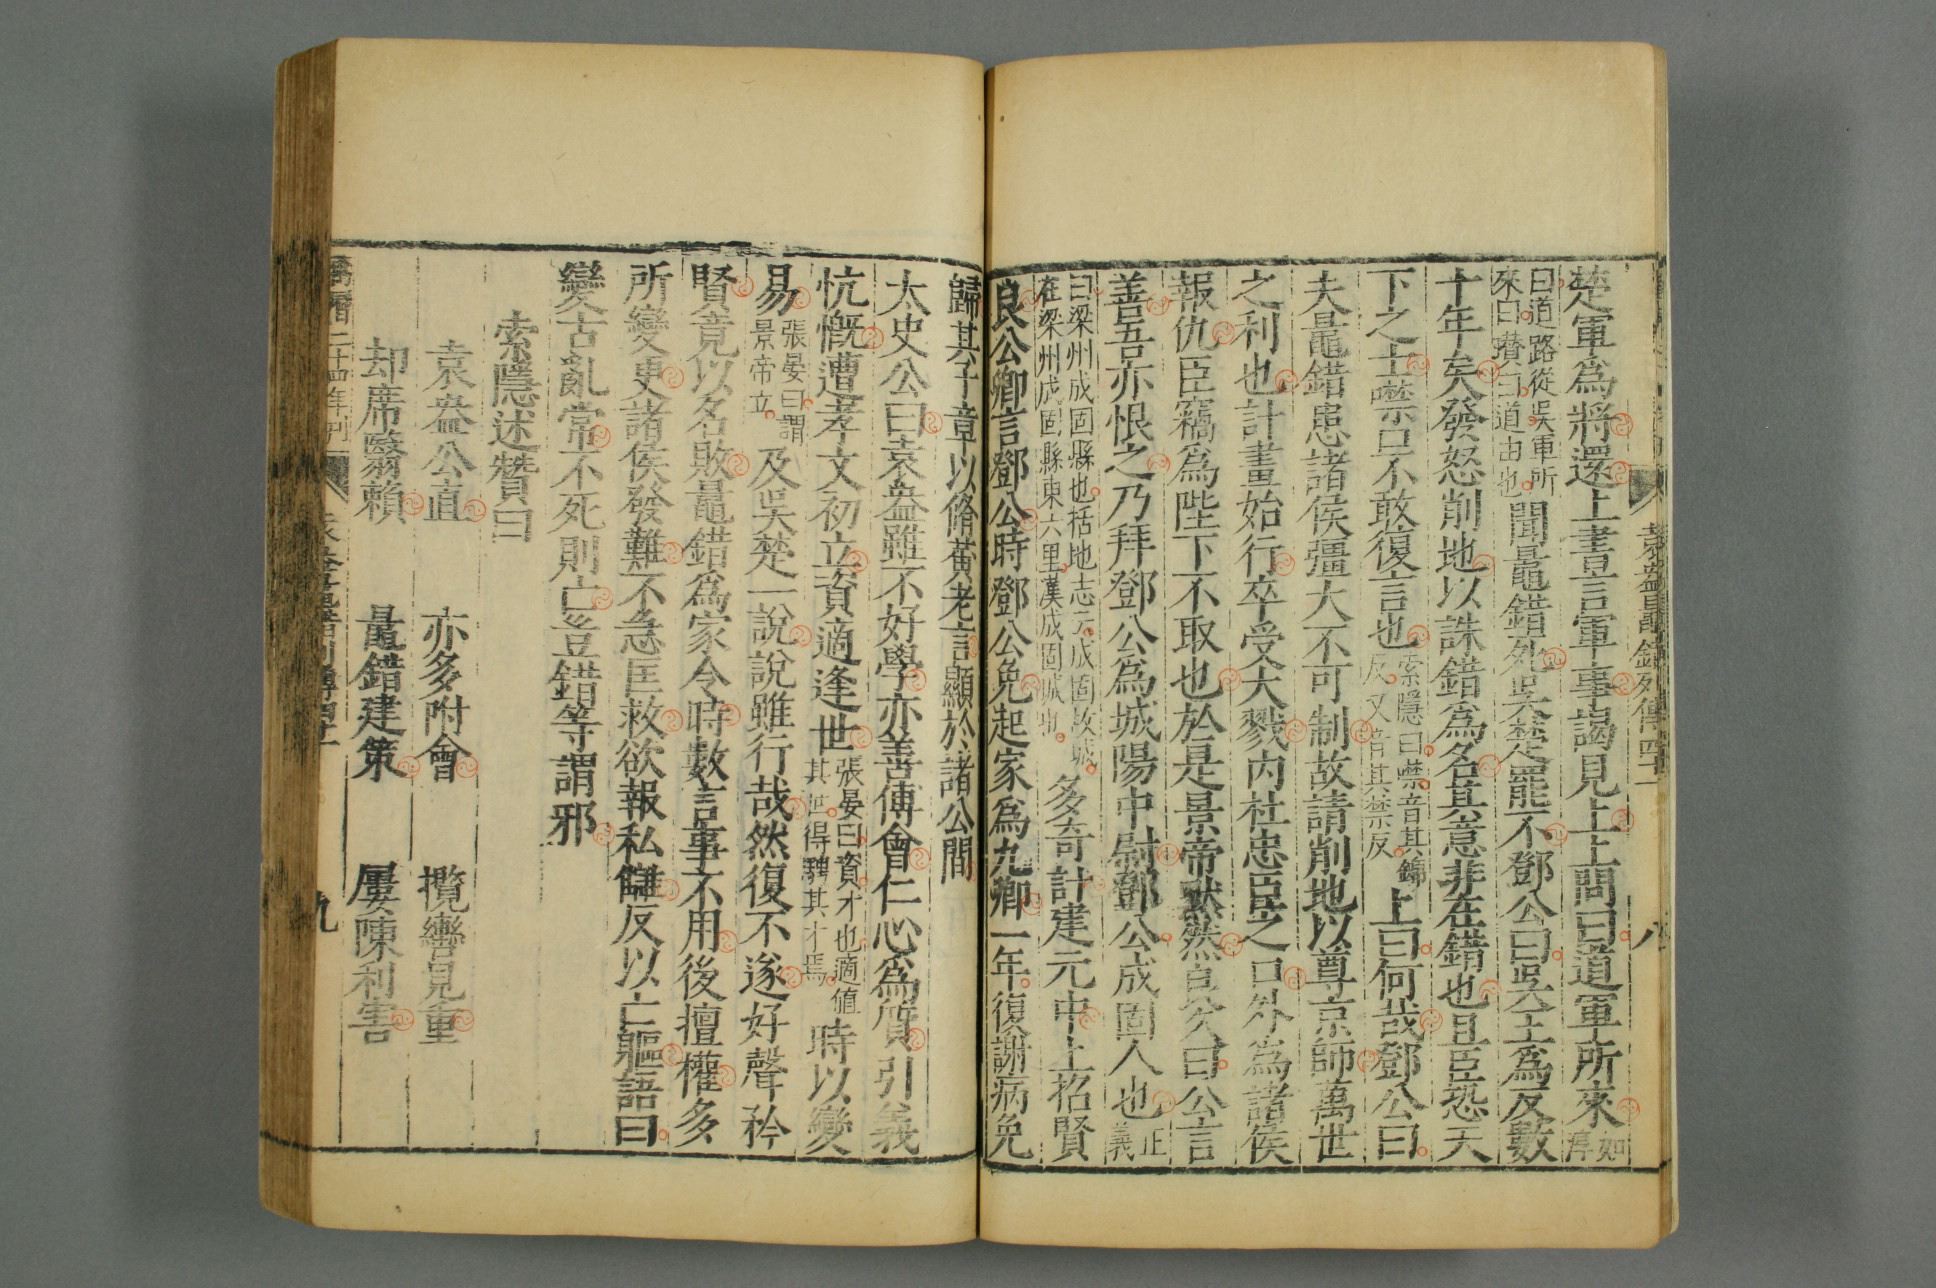 袁盎鼂錯列傳四十一 八
楚軍爲將還上書言軍事謁見上上問曰道軍所來如淳
曰道路從吳軍所來曰瓚曰道由也聞鼂錯死吳楚罷不鄧公曰吳王爲反數
十年矣發怒削地以誅錯爲名其意非在錯也且臣恐天
下之士噤口不敢復言也索隱曰噤音其錦反又音其禁反上曰何哉鄧公曰
夫鼂錯患諸侯彊大不可制故請削地以尊京師萬世
之利也計畫始行卒受大戮内杜忠臣之口外爲諸侯
報仇臣竊爲陛下不取也於是景帝默然良久曰公言
善吾亦恨之乃拜鄧公爲城陽中尉鄧公成固人也正義
曰梁州成固縣也括地志云成固故城在梁州成固縣東六里漢成固城也多奇計建元中上招賢
良公卿言鄧公時鄧公免起家爲九卿一年復謝病免
歸其子章以脩黃老言顯於諸公間
太史公曰袁盎雖不好學亦善傅會仁心爲質引義
忼慨遭孝文初立資適逢世張晏曰資才也適值其世得騁其才焉時以變
易張晏曰謂景帝立及吳楚一說說雖行哉然復不遂好聲矜
賢竟以名敗鼂錯爲家令時數言事不用後擅權多
所變更諸侯發難不急匡救欲報私讎反以亡軀語曰
變古亂常不死則亡豈錯等謂邪
索隱述贊曰
袁盎公直 亦多附會 攬轡見重
却席翳賴 鼂錯建策 屢陳利害
萬曆二十四年刊 九